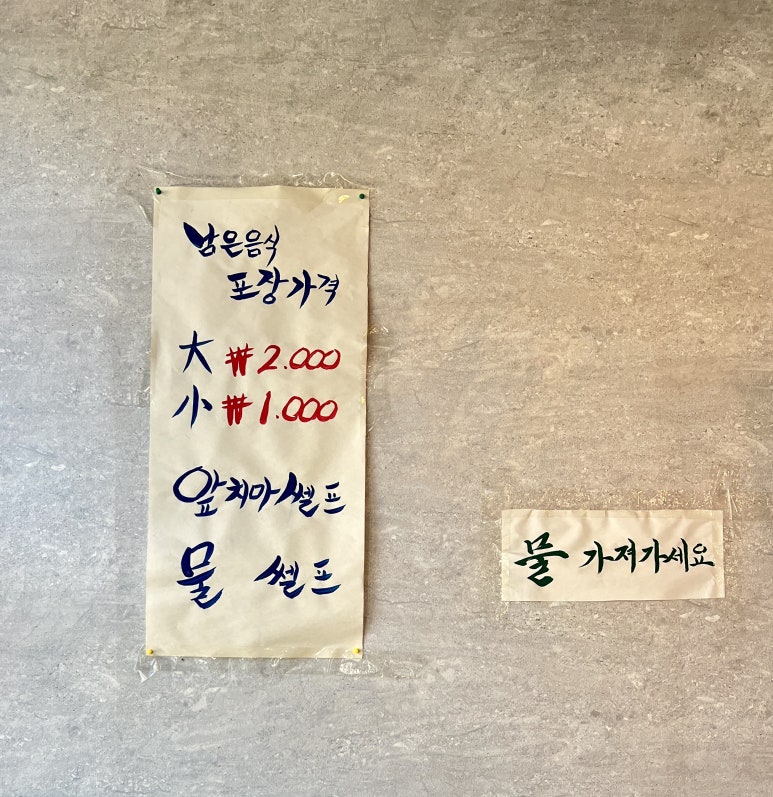 남은음식
포장가격
大 ₩2.000
小 ₩1.000
앞치마쎌프
물 쎌프
물 가져가세요